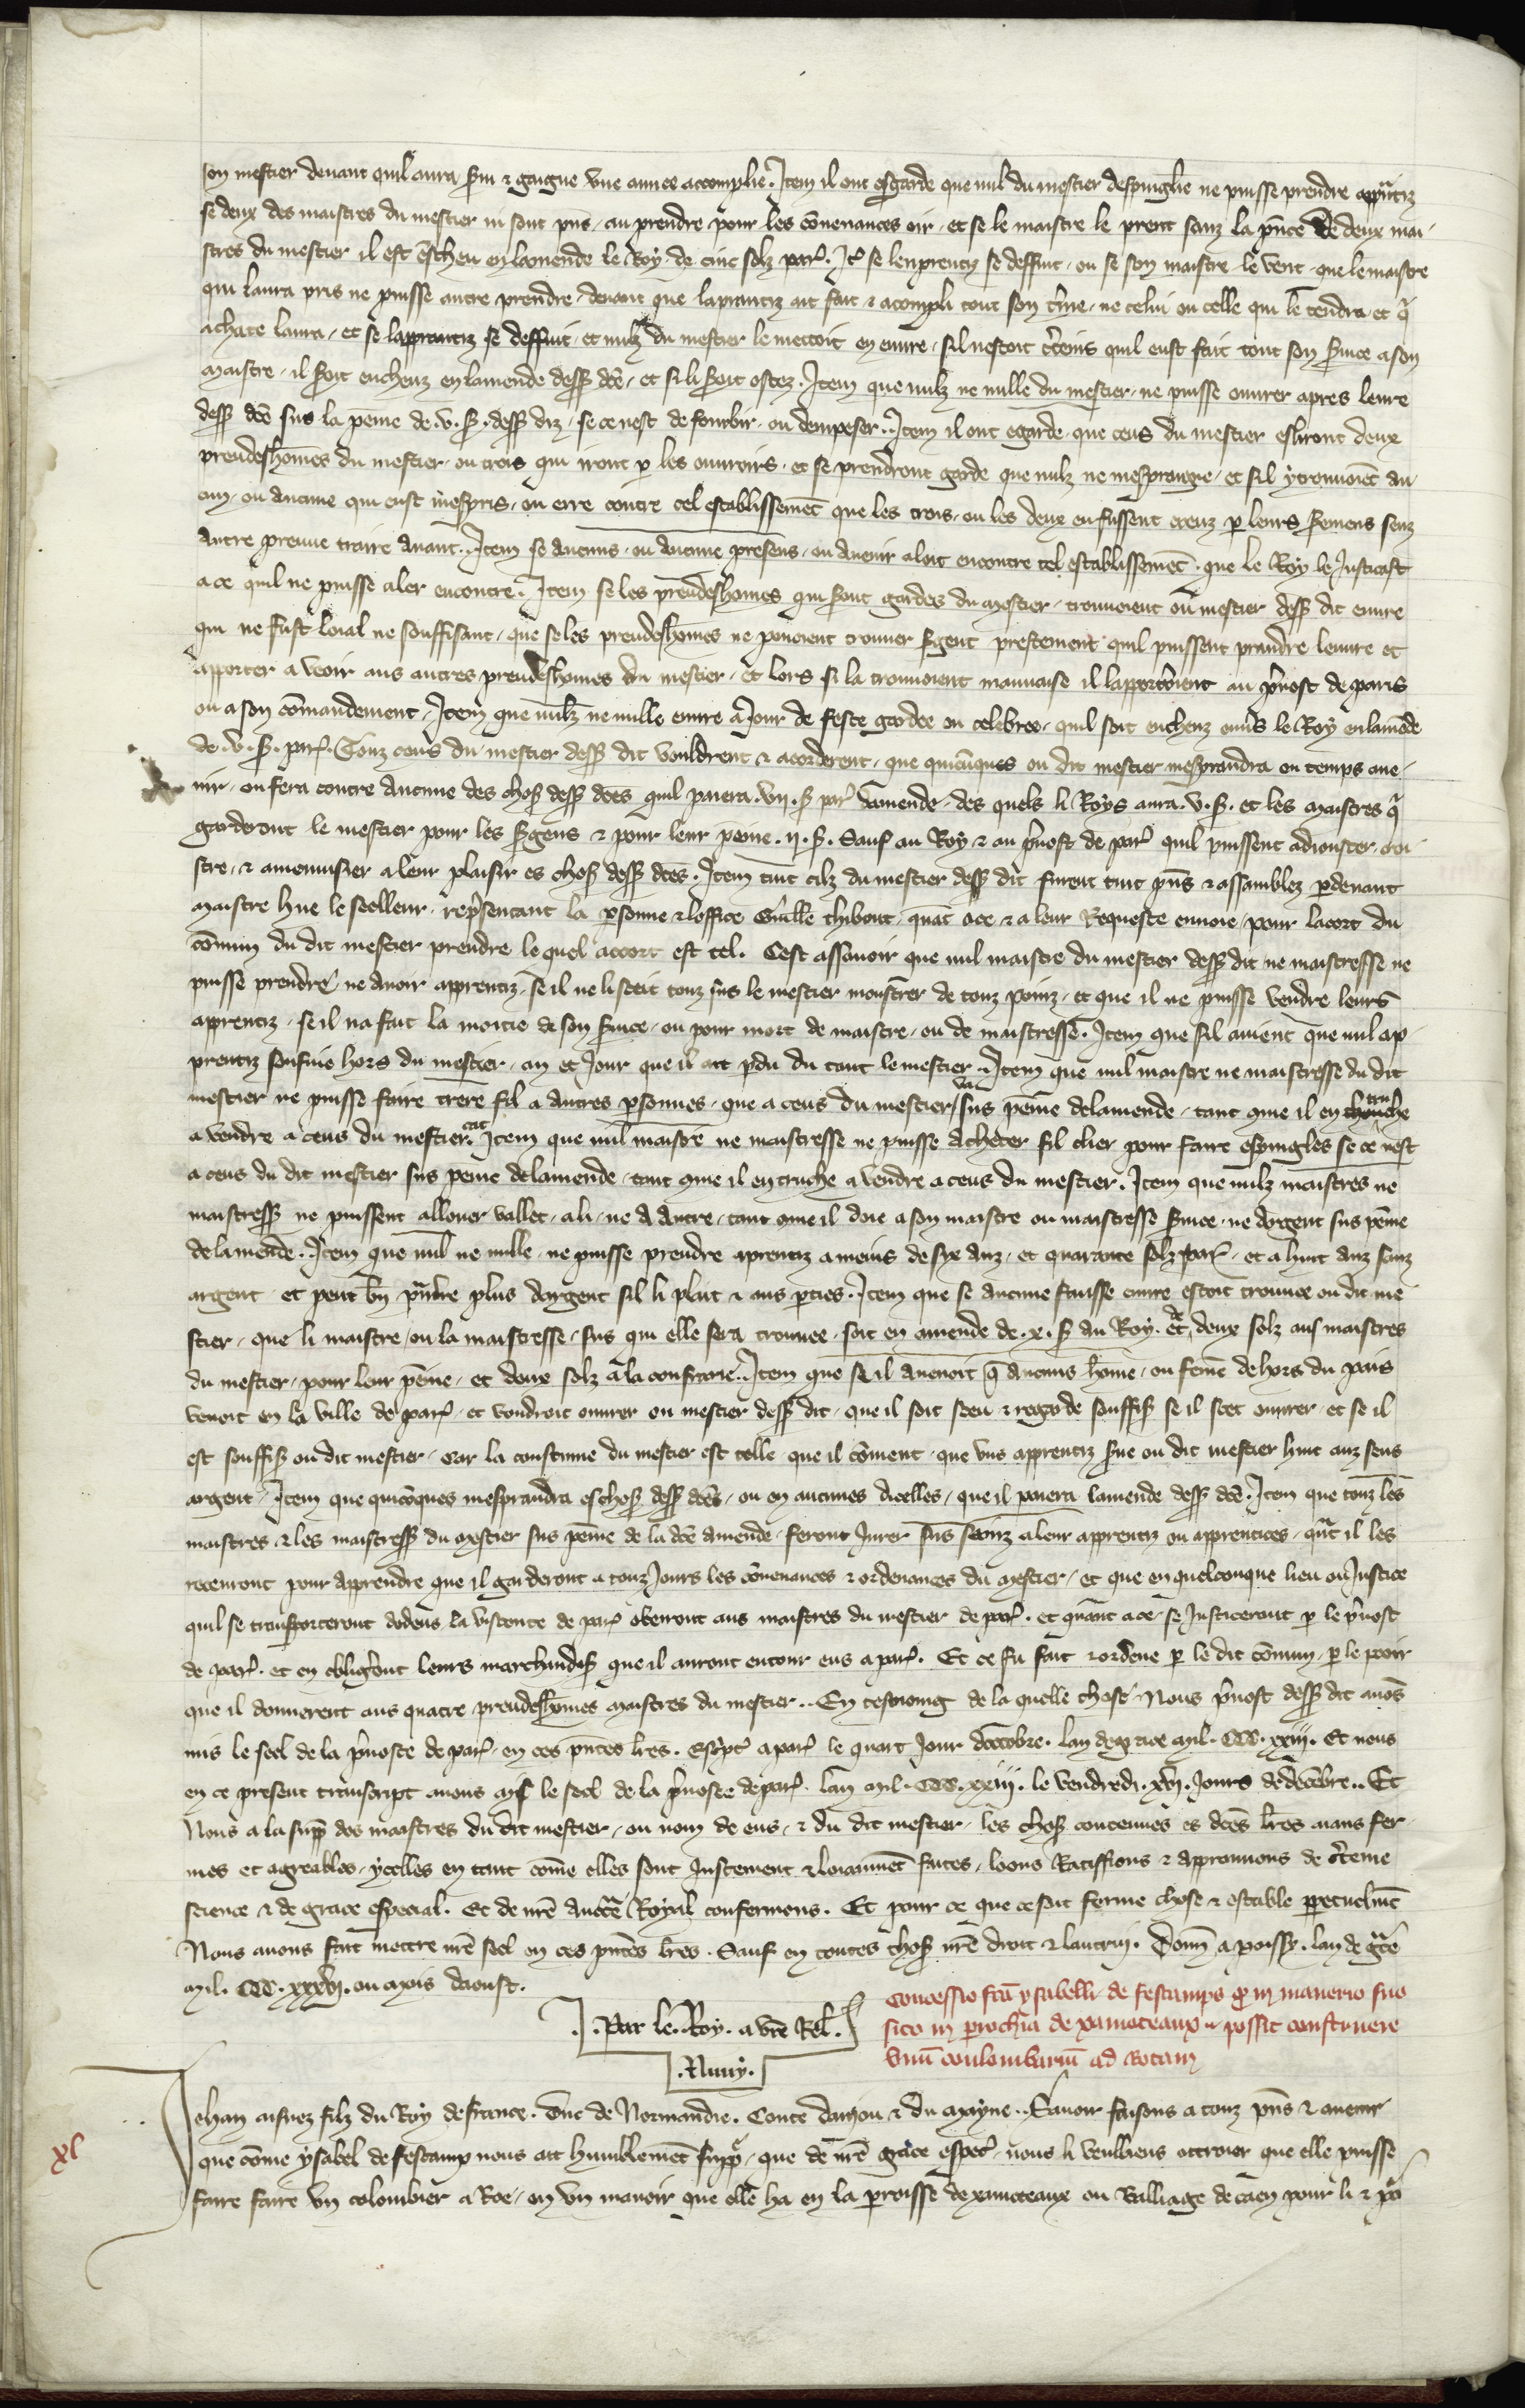 son mestier devant quil aura servi & gaigne une annee accomplie. Item il ont esgarde que nul du mestier despinglie ne puisse prendre apprentiz
se deux des maistres du mestier ni sont pns, au prendre pour les convenances oir, et se le maistre le prent sanz la pnce de deux mai-
stres du mestier il est escheu en lamende le Roy de cinc solz par. It se lenprentiz se deffuit, ou se son maistre le vent, que le maistre
qui laura pris ne puisse autre prendre, devant que laprantiz ait fait & acompli tout son tme, ne celui ou celle qui le tendra et q
achate laura, et se lapprantiz se deffuit, et nulz du mestier le mettoit en euvre, sil nestoit cteins quil eust fait tout son service a son
maistre, il seroit encheuz en lamende dess dce, et si li seroit ostez. Item que nulz ne nulle du mestier, ne puisse ouvrer apres leure
dess dce sus la peine de .v. s. dess diz, se ce nest de fourbir, ou dempeser. Item il ont egarde, que ceus du mestier esliront deux
preudeshomes du mestier, ou trois qui iront p les ouvroirs, et se prendront garde que nulz ne mesprengne, et sil y trouvoiet au-
cun, ou aucune qui eust mespris, ou erre contre cel establissemet que les trois, ou les deux en fussent creuz p leurs seremens senz
autre preuve traire avant. Item se aucuns, ou aucune presens, ou avenir aloit encontre tel establissemet, que le Roy le justicast
a ce quil ne puisse aler encontre. Item se les preudeshomes qui seront gardes du mestier, trouvoient ou mestier dess dit euvre
qui ne fust loial ne souffisant, que se les preudeshomes ne povoient trouver sgent prestement quil puissent prandre leuvre et
apporter a veoir aus autres preudeshomes du mestier, et lors si la trouvoient mauvaise il lapporteroient au pvost de paris
ou a son comandement, Item que nulz ne nulle euvre a Jour de feste gardee ou celebree, quil soit encheuz envs le Roy en lamede
de .v. s. par. Touz ceus du mestier dess dit vouldrent & acorderent, que quicuques ou dit mestier mesprandra ou temps ave-
nir, ou fera contre aucune des chos dess dces quil paiera .vii. s par damende, des quels li Roys aura .v. s. et les maistres q
garderont le mestier pour les sgens & pour leur peine .ii. s. Sauf au Roy & au pvost de par quil puissent adiouster croi-
stre, & amenuisier a leur plaisir es chos dess dces. Item tuit cilz du mestier dess dit furent tuit pns & assamblez p devant
maistre hue le seelleur, represantant la psonne & loffice Guille thibout, quat ace, & a leur Requeste envoie, pour lacort du
comun du dit mestier prendre le quel accort est tel. Cest assavoir que nul maistre du mestier dess dit ne maistresse ne
puisse prendre, ne avoir apprentiz, se il ne li seeit touz sus le mestier monstrer de touz poinz, et que il ne puisse vendre leurs
aprentiz, se il na fait la moitie de son service, ou pour mort de maistre, ou de maistresse. Item que sil avient que nul ap-
prentiz senfuie hors du mestier, an et Jour que il ait pdu du tout le mestier. Item que nul maistre ne maistresse du dit
mestier ne puisse faire trere fil a autres psonnes, que a ceus du mestier, sus peine de lamende, tant que il en truche
a vendre a ceus du mestier. Item que nul maistre ne maistresse ne puisse acheter fil cher pour faire espingles se ce nest
a ceus du dit mestier sus peine de lamende, tant que il en truche a vendre a ceus du mestier. Item que nulz maistres ne
maistress ne puissent allouer vallet, a li, ne a autre, tant que il doie a son maistre ou maistresse service, ne argent sus peine
de lamende. Item que nul ne nulle, ne puisse prendre aprentiz a meins de six anz, et quarante solz par, et a huit anz sanz
argent, et peut bn prndre plus dargent sil li plait & aus pties. Item que se aucune fausse euvre estoit trouvee ou dit me-
stier, que li maistre, ou la maistresse, sus qui elle sera trouvee, soit en amende de .x. s au Roy. et de deux solz aus maistres
du mestier, pour leur peine, et deux solz a la confrarie. Item que se il avenoit q aucuns home, ou feme de hors du pais
venoit en la ville de par, et voudroit ouvrer ou mestier dess dit, que il soit sceu & regarde souffis se il scet ouvrer, et se il
est souffis ou dit mestier, car la coustume du mestier est telle, que il coment, que uns apprentiz serve ou dit mestier huit anz sens
argent, Item que quicoques mesprandra es chos dess dces, ou en aucunes dicelles, que il paiera lamende dess dce. Item que touz les
maistres, & les maistress du mestier sus peine de la dce amende, feront Jurer sus seinz a leur aprentiz ou apprentices, qut il les
recevront pour apprendre que il garderont a touz Jours les covenances & ordenances du mestier, et que en quelconque lieu ou Justice
quil se transporteront dedens la viconte de par obeiront aus maistres du mestier de par. et quant ace, se Justiceront p le pvost
de par. et en obligeront leurs marchandis que il auront entour eus a par. Et ce fu fait & ordene p le dit comun, p le pooir
que il donnerent aus quatre preudeshomes maistres du mestier. En tesmoing de la quelle chose, Nous pvost dess dit avos
mis le seel de la pvoste de par, en ces pntes lres. Escpt a par le quart Jour doctobre. lan de grace mil. CCC. xxiii. Et nous
en ce present transcript avons mis le seel de la pvoste de par. lan mil. CCC. xxiii. le vendredi .xvi. Jours de decebre. Et
Nous a la supp des maistres du dit mestier, ou nom de eus, & du dit mestier, les chos contenues es dces lres aians fer-
mes et agreables, ycelles en tant come elles sont Justement & loiaumet faites, loons Ratiffions & approuvons de cteine
science & de grace especial. Et de nre aucte Royal confermons. Et pour ce que ce soit ferme chose & estable ppetuelmet
Nous avons fait mettre nre seel en ces pntes lres. Sauf en toutes chos nre droit & lautrui. Donn a poissy. lan de gce
mil. CCC. xxxvi. ou mois daoust.
Par le. Roy. a vre Rel.
.Nuny.
Concessio fca ysabelli de festamps q in manerio suo
sito in prochia de xanoteaux possit construere
unu coulombariu ad Rotam
xl
Jehan aisnez filz du Roy de france. Duc de Normandie. Conte danjou & du mayne. Savoir faisons a touz pns & avenir
que come ysabel de festamp nous ait humblemet supp, que de nre grace espec, nous li veulliens ottroier que elle puisse
faire faire un colombier a Roe, en un manoir que elle ha en la proisse de xanoteaux ou Balliage de caen pour li & po